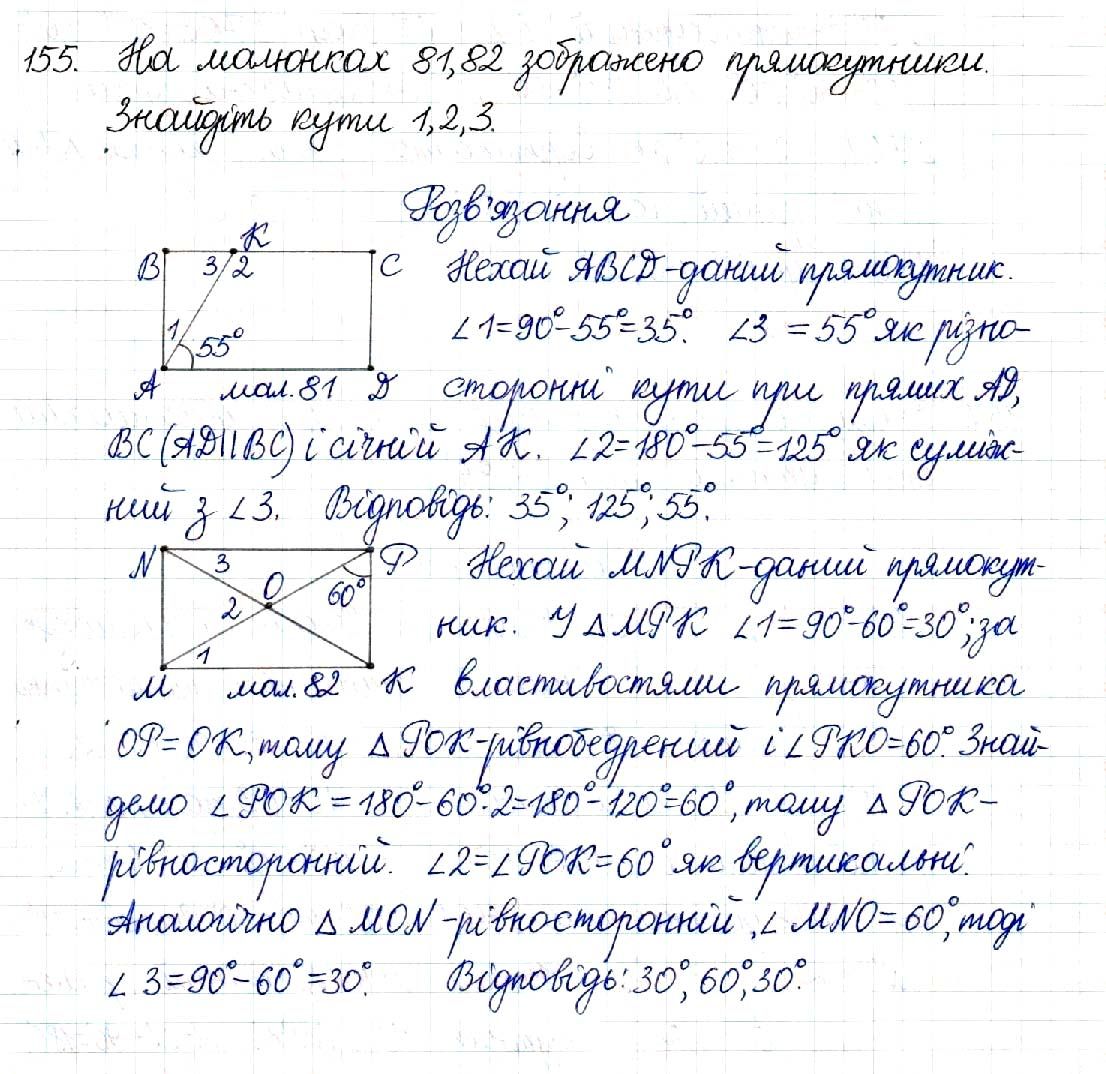 155. На малюнках 81,82 зображено прямокутники.
Знайдіть кути 1, 2, 3.
Розв'язання
K
B 3 2 C
1 55°
A мал. 81 D
Нехай ABCD-даний прямокутник.
∠1=90°-55°=35°. ∠3 =55° як різно-
сторонні кути при прямих AD,
BC (AD||BC) і січній AK. ∠2=180°-55°=125° як суміж-
ний з ∠3. Відповідь: 35°; 125°; 55°.
N 3 P
O 60°
2
1
M мал. 82 K
Нехай MNPK-даний прямокут-
ник. У △MPK ∠1=90°-60°=30°; за
властивостями прямокутника
OP=OK, тому △POK-рівнобедрений і ∠PKO=60°. Знай-
демо ∠POK =180°-60°·2=180°-120°=60°, тому △POK-
рівносторонній. ∠2=∠POK=60° як вертикальні.
Аналогічно △MON-рівносторонній, ∠MNO=60°, тоді
∠3=90°-60°=30°. Відповідь: 30°, 60°, 30°.